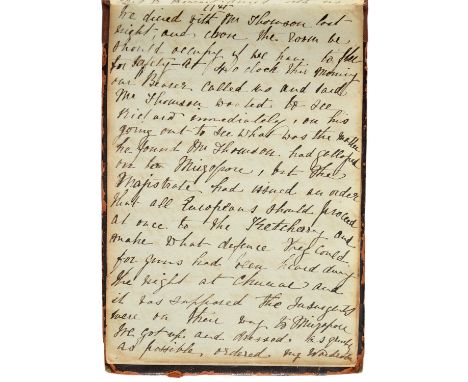 11th
We dined with Mr Thomson last
night, and chose the room we
should occupy if we have to flee
for safety - At 4 o'clock this morning
our Bearer called us and said
Mr Thomson wanted to see
Richard immediately, on his
going out to see what was the matter
he found Mr Thomson had galloped
Mirzapore, but the
Magistrate had issued an order
that all Europeans should proceed
at once to the Ketcherry and
make what defence they could
for guns had been heard during
the night at Chunar and
it was supposed the Insurgents
were on their way to Mirzapore
We got up and dressed as quickly
as possible, ordered my